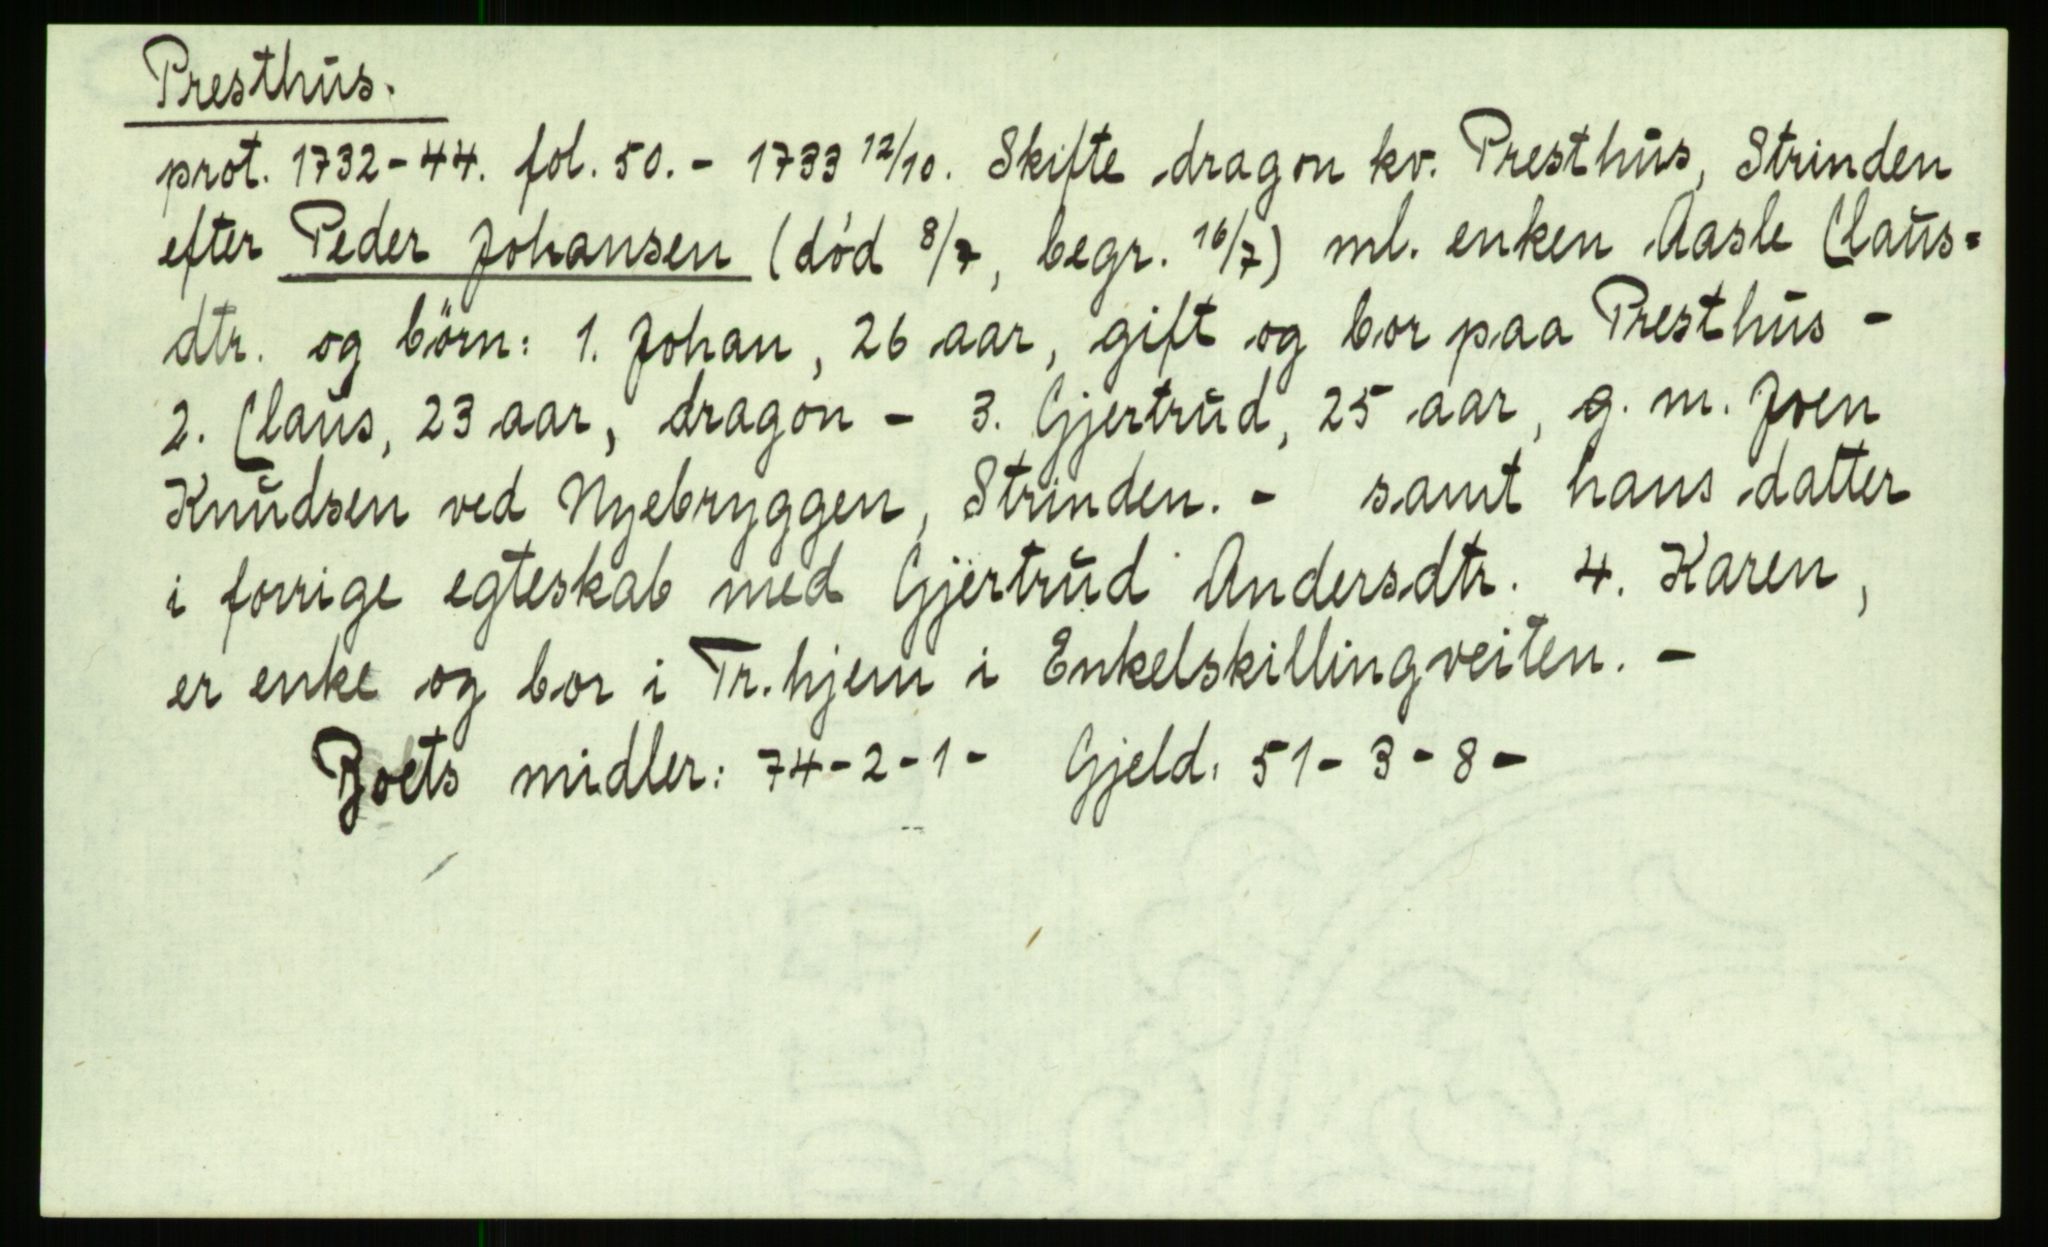 Presthus.
prot. 1732-44. fol. 50. - 1733 12/10. Skifte dragon kv. Presthus, Strinden
efter Peder Johansen (död 8/7, begr. 16/7) ml. enken Aasle Claus=
dtr. og börn: 1. Johan, 26 aar, gift og bor paa Presthus -
2. Claus, 23 aar, dragon - 3. Gjertrud, 25 aar, g. m. Joen
Knudsen ved Nyebryggen, Strinden. - samt hans datter
i forrige egteskab med Gjertrud Andersdtr. 4. Karen,
er enke og bor i Tr.hjem i Enkelskillingveiten. -
Boets midler: 74-2-1- Gjeld: 51-3-8-